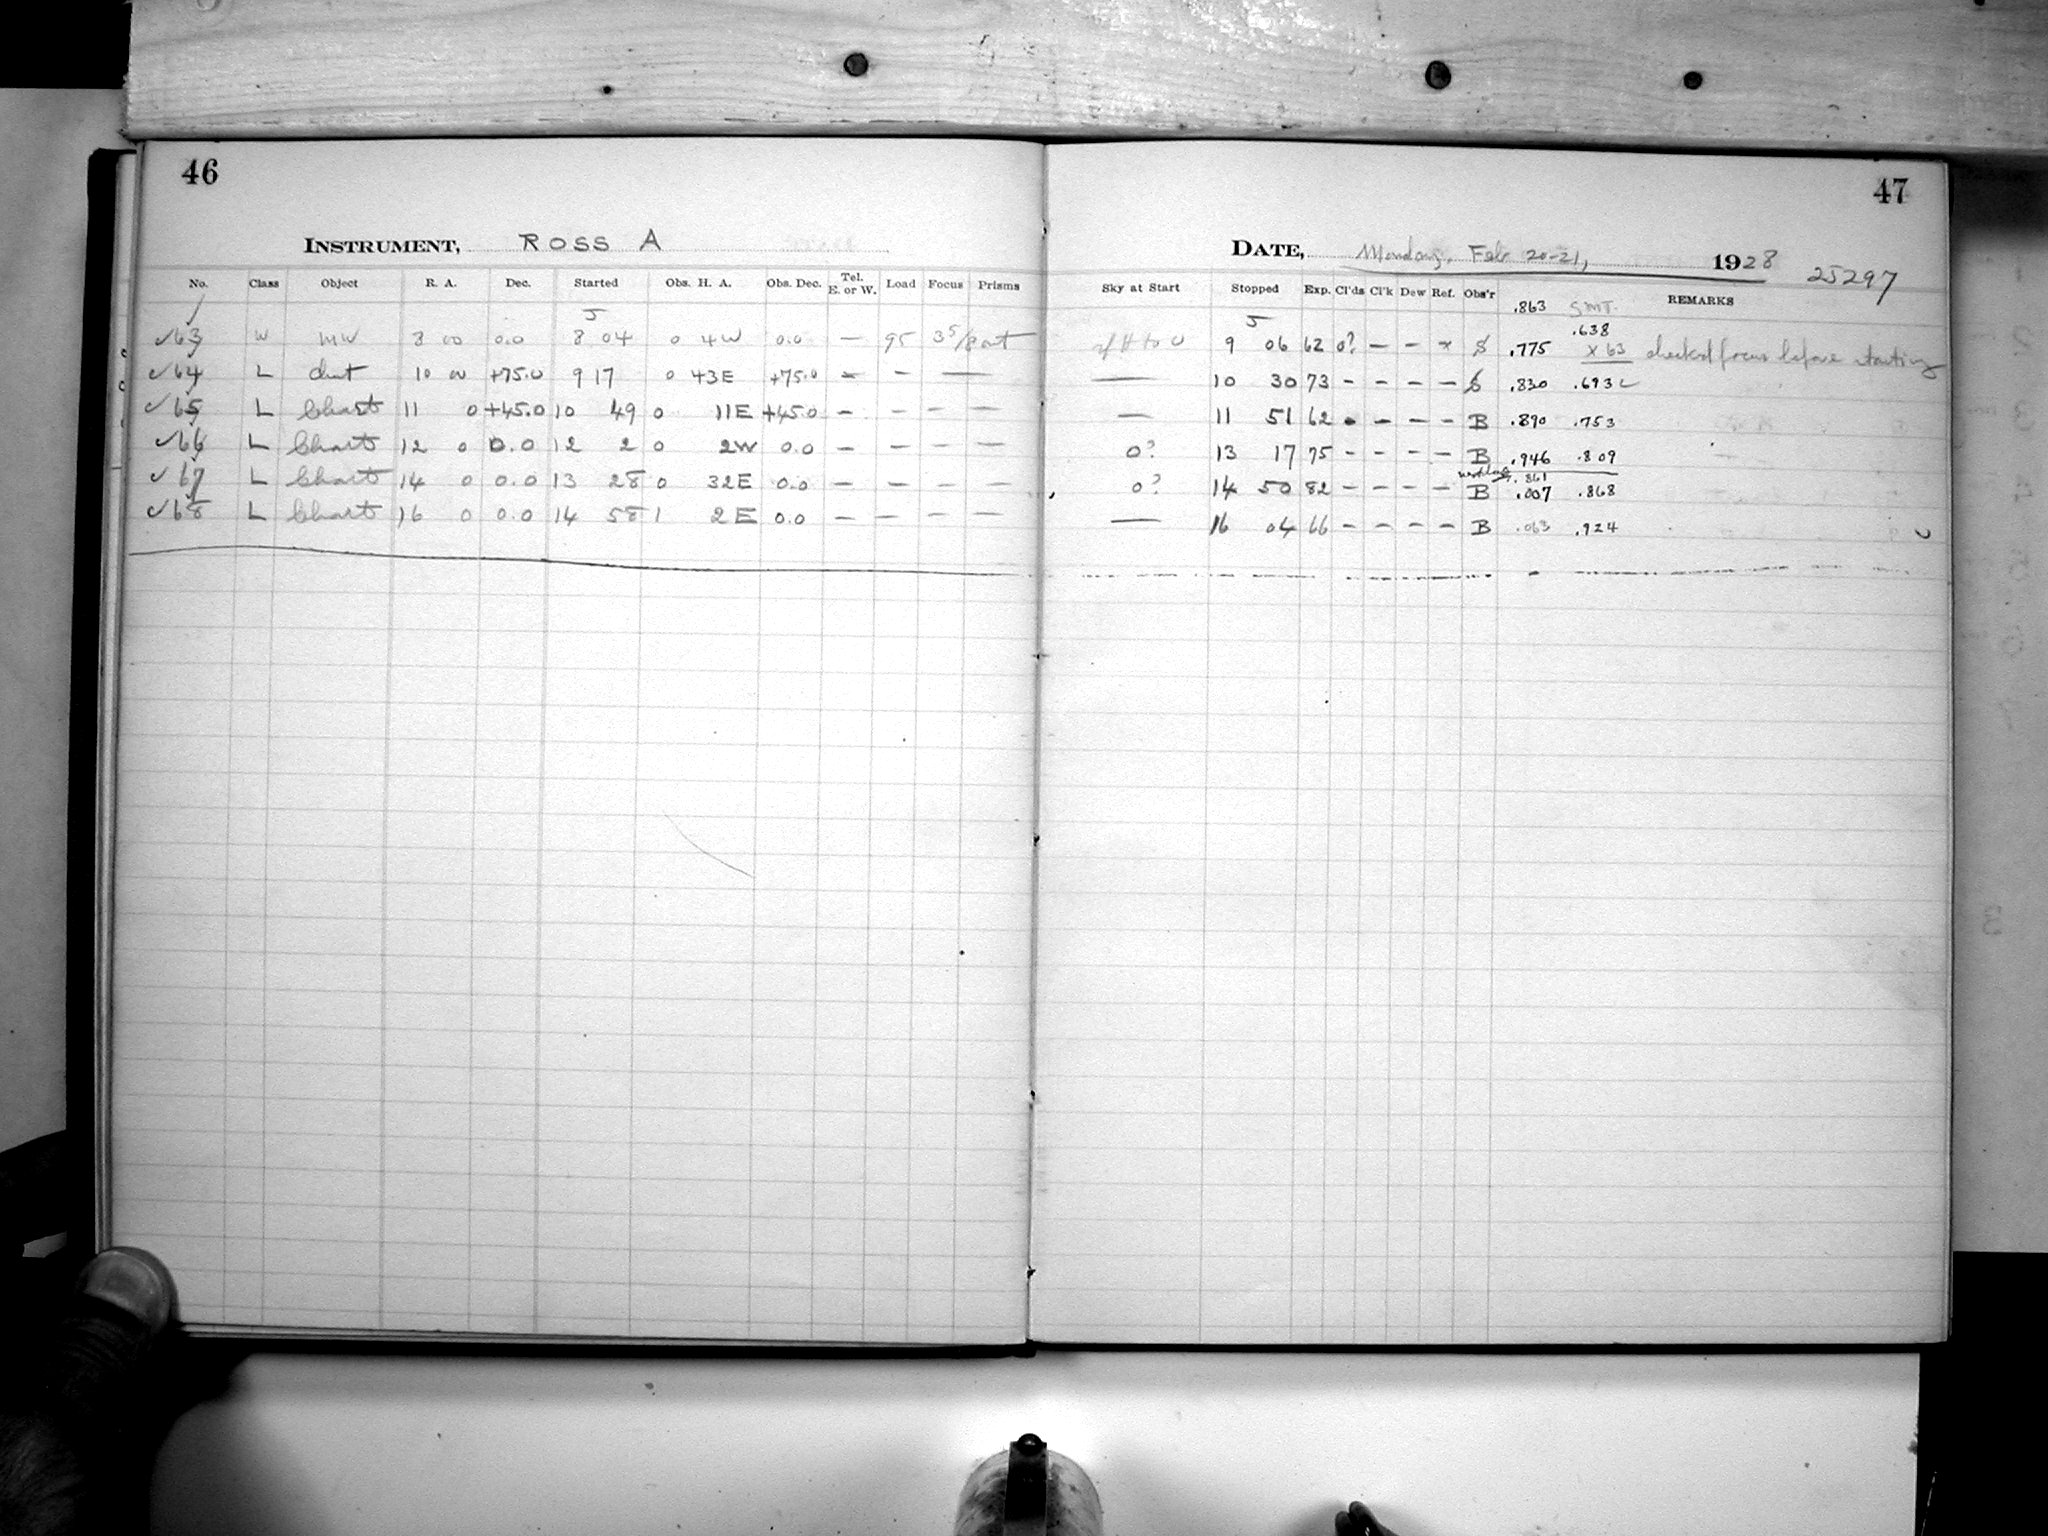 46
47
INSTRUMENT, ROSS A
DATE, Monday, Feb 20-21, 1928 25297
No. Class Object R. A. Dec. Started Obs. H. A. Obs. Dec. Tel. E. or W. Load Focus Prisms
Sky at Start Stopped Exp. Cl'ds Cl'k Dew Ref. Obs'r REMARKS
.863 SMT.
.638
63 W MW 8 00 0.0 8 04 0 4W 0.0 — 95 9 06 62 0? — — x S .775 x 63 checked focus before starting
64 L 10 00 +75.0 9 17 0 43E +75.0 — — — — 10 30 73 - - - - S .830 .693
65 L Chart 11 0 +45.0 10 49 0 11E +45.0 — — — — — 11 51 62 - - - - B .890 .753
66 L Chart 12 0 0.0 12 2 0 2W 0.0 — — — — 0? 13 17 75 - - - - B .946 .809
.861
67 L Chart 14 0 0.0 13 28 0 32E 0.0 — — — — 0? 14 50 82 - - - - B .007 .868
68 L Chart 16 0 0.0 14 58 1 2E 0.0 — — — — — 16 04 66 - - - - B .063 .924